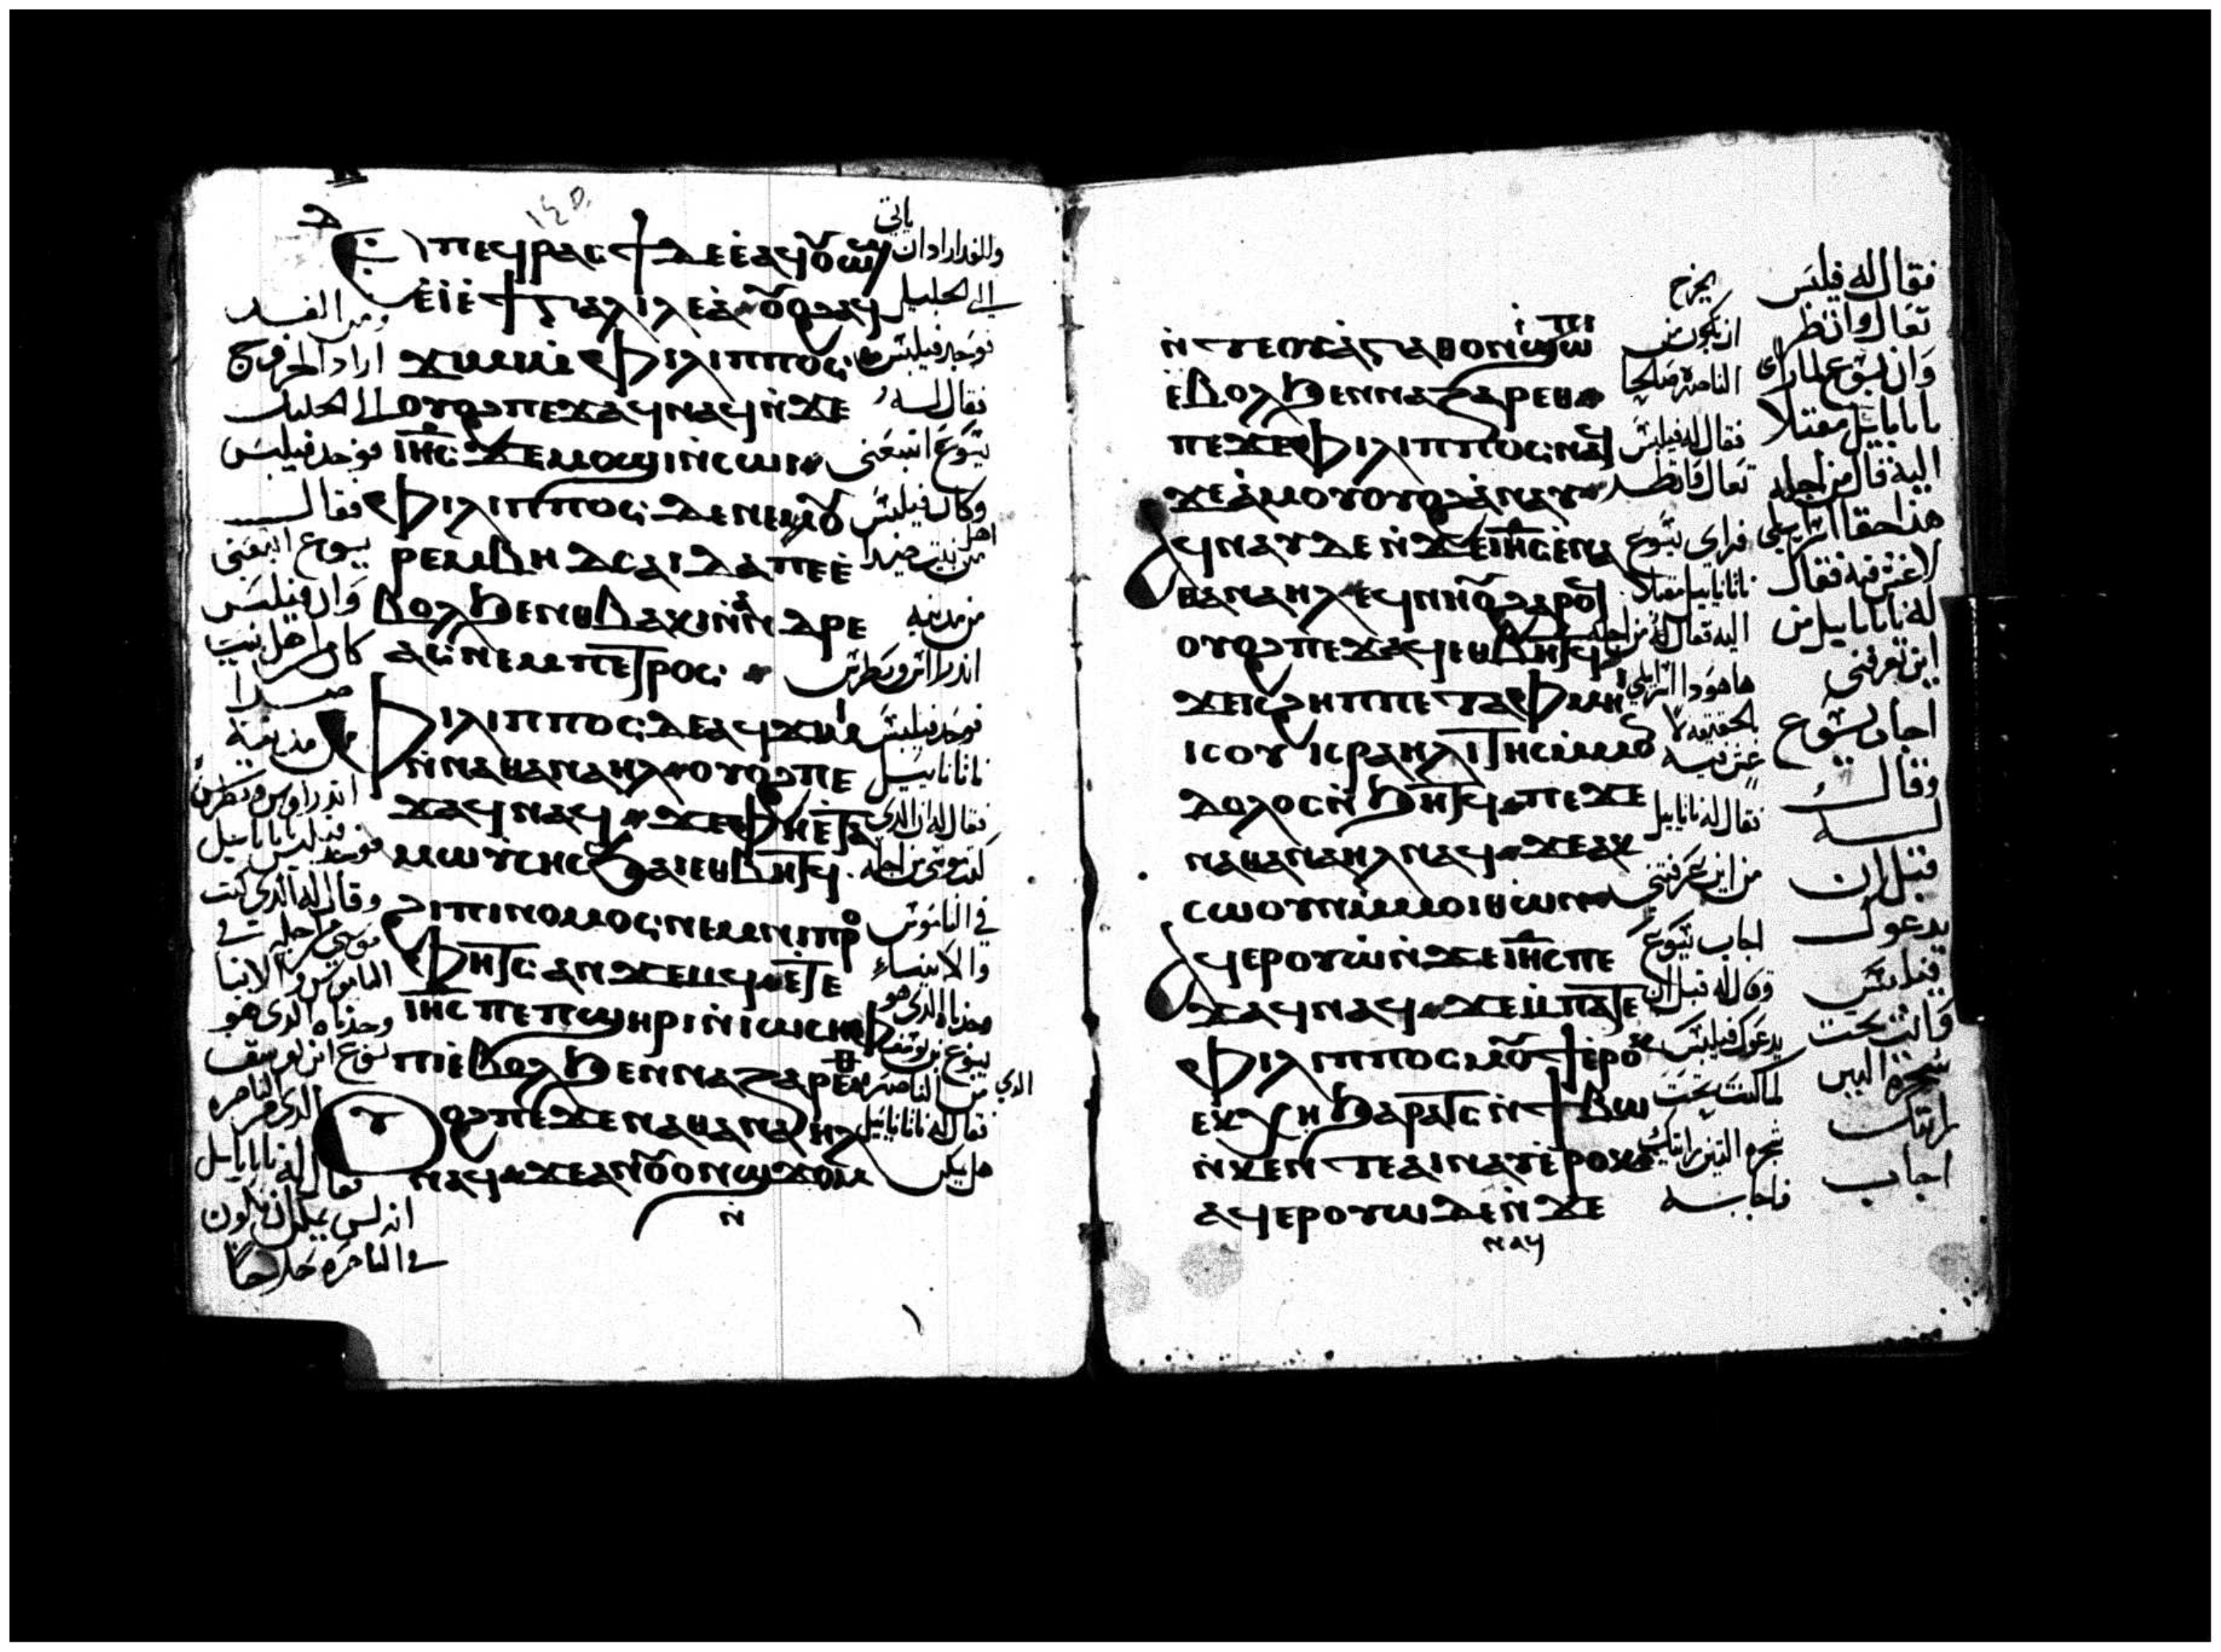 ⲇ
ⲡⲉϥⲣⲁⲥϯ ⲇⲉ ⲉ̇ⲁϥⲟⲩⲱϣ
ⲉ̇ⲓ̇ ⲉ̇ϯⲅⲁⲗⲓⲗⲉⲁ̇ ⲟⲩⲟϩ ⲁϥ
ϫⲓⲙⲓ ⲙ̇ⲫⲓⲗⲓⲡⲡⲟⲥ
ⲟⲩⲟϩ ⲡⲉϫⲁϥ ⲛⲁϥ ⲛ̇ϫⲉ
ⲓⲏⲥ ϫⲉ ⲙⲟϣⲓ ⲛ̇ⲥⲱⲓ
ⲫⲓⲗⲓⲡⲡⲟⲥ ⲇⲉ ⲛⲉ ⲟⲩ
ⲣⲉⲙⲃⲏⲇⲥⲁⲓⲇⲁ ⲡⲉ ⲉ̇
ⲃⲟⲗ ϧⲉⲛ ⲑⲃⲁⲕⲓ ⲛ̇ⲁⲛⲇⲣⲉ
ⲁⲥ ⲛⲉⲙ ⲡⲉⲧⲣⲟⲥ
ⲫⲓⲗⲓⲡⲡⲟⲥ ⲇⲉ ⲁϥϫⲓⲙⲓ
ⲛ̇ⲛⲁⲑⲁⲛⲁⲏⲗ ⲟⲩⲟϩ ⲡⲉ
ϫⲁϥ ⲛⲁϥ ϫⲉ ⲫⲏ ⲉ̇ⲧⲁ
ⲙⲱⲩⲥⲏⲥ ⲥϧⲁⲓ ⲉⲑⲃⲏⲧϥ
ϩⲓ ⲡⲓⲛⲟⲙⲟⲥ ⲛⲉⲙ ⲛⲓⲡⲣⲟ
ⲫⲏⲧⲏⲥ ⲁⲛϫⲉⲙϥ ⲉⲧⲉ
ⲓⲏⲥ ⲡⲉ ⲡϣⲏⲣⲓ ⲛ̇ⲓⲱⲥⲏⲫ
ⲡⲓⲉ̇ⲃⲟⲗ ϧⲉⲛ ⲛⲁⲍⲁⲣⲉⲑ
ⲟⲩⲟϩ ⲡⲉϫⲉ ⲛⲁⲑⲁⲛⲁⲏⲗ
ⲛⲁϥ ϫⲉ ⲁⲛ ⲟⲩⲟⲛ ϣϫⲟⲙ
ⲛ̇
ياتي
وللغد اراد ان
الي الجليل
فوجد فيلبس
فقال له
يسوع اتبعني
وكان فيلبس
من بيت صيدا
اهل
من مدينه
اندراس وبطرس
فوجد فيلبس
ناثانابيل
فقال له ان الذي
كتب موسي من اجله
في الناموس
والانبياء
وجدناه الذي هو
يسوع بن يوسف
الذي من الناصره
فقال له ناثانابيل
هل يمكن
ومن الغد
اراد الخروج
الي الجليل
فوجد فيلبس
فقال
يسوع اتبعني
وان فيلبس
كان من اهل بيت
صيدا
من مدينة
اندراوس وبطرس
فوجد فيلبس ناثانابيل
وقال له الذي كتب
موسي من اجله في
الناموس والانبيا
وجدناه الذي هو
يسوع ابن يوسف
الذي من الناصره
فقال له ناثانابيل
انه ليس يمكن ان يكون
في الناصره صلاحا
ⲛ̇ⲧⲉ ⲟⲩⲁ̇ⲅⲁⲑⲟⲛ ϣⲱⲡⲓ
ⲉ̇ⲃⲟⲗ ϧⲉⲛ ⲛⲁⲍⲁⲣⲉⲑ
ⲡⲉϫⲉ ⲫⲓⲗⲓⲡⲡⲟⲥ ⲛⲁϥ
ϫⲉ ⲁ̇ⲙⲟⲩ ⲟⲩⲟϩ ⲁ̇ⲛⲁⲩ
ⲁϥⲛⲁⲩ ⲇⲉ ⲛ̇ϫⲉ ⲓⲏⲥ ⲉ̇ⲛⲁ
ⲑⲁⲛⲁⲏⲗ ⲉϥⲛⲏⲟⲩ ϩⲁⲣⲟϥ
ⲟⲩⲟϩ ⲡⲉϫⲁϥ ⲉⲑⲃⲏⲧϥ
ϫⲉ ⲓⲥ ϩⲏⲡⲡⲉ ⲧⲁⲫⲙⲏⲓ
ⲓⲥ ⲟⲩ ⲓⲥⲣⲁⲏⲗⲓⲧⲏⲥ ⲙ̇ⲙⲟⲛ
ⲇⲟⲗⲟⲥ ⲛ̇ϧⲏⲧϥ ⲡⲉϫⲉ
ⲛⲁⲑⲁⲛⲁⲏⲗ ⲛⲁϥ ϫⲉ ⲁⲕ
ⲥⲱⲟⲩⲛ ⲙ̇ⲙⲟⲓ ⲑⲱⲛ
ⲁϥⲉⲣⲟⲩⲱ̇ ⲛ̇ϫⲉ ⲓⲏⲥ ⲡⲉ
ϫⲁϥ ⲛⲁϥ ϫⲉ ⲙ̇ⲡⲁⲧⲉ
ⲫⲓⲗⲓⲡⲡⲟⲥ ⲙⲟⲩϯ ⲉ̇ⲣⲟⲕ
ⲉⲕⲭⲏ ϧⲁⲣⲁⲧⲥ ⲛ̇ϯⲃⲱ
ⲛ̇ⲕⲉⲛⲧⲉ ⲁⲓⲛⲁⲩ ⲉ̇ⲣⲟⲕ
ⲁϥⲉⲣⲟⲩⲱ ⲇⲉ ⲛ̇ϫⲉ
ⲛⲁϥ
يخرج
ان يكون من
الناصره صلحا
فقال له فيلبس
تعال فانظر
فراي يسوع
ناثانابيل مقبلا
اليه فقال له من اجله
ها هوذا اسراييلي
بالحقيقه لا
غش فيه
فقال له ناثانابيل
من اين عرفتني
اجاب يسوع
وقال له قبل ان
يدعوك فيلبس
لما كنت تحت
شجره التين رايتك
فاجابه
فقال له فيلبس
تعال وانظر
وان يسوع لما راي
ناثانابيل مقبلا
اليه قال من اجله
هذا حقا اسراييلي
لا غش فيه فقال
له ناثانابيل من
اين تعرفني
اجاب يسوع
وقال
له
قبل ان
يدعوك
فيلبس
وانت تحت
شجرة التين
رايتك
اجاب